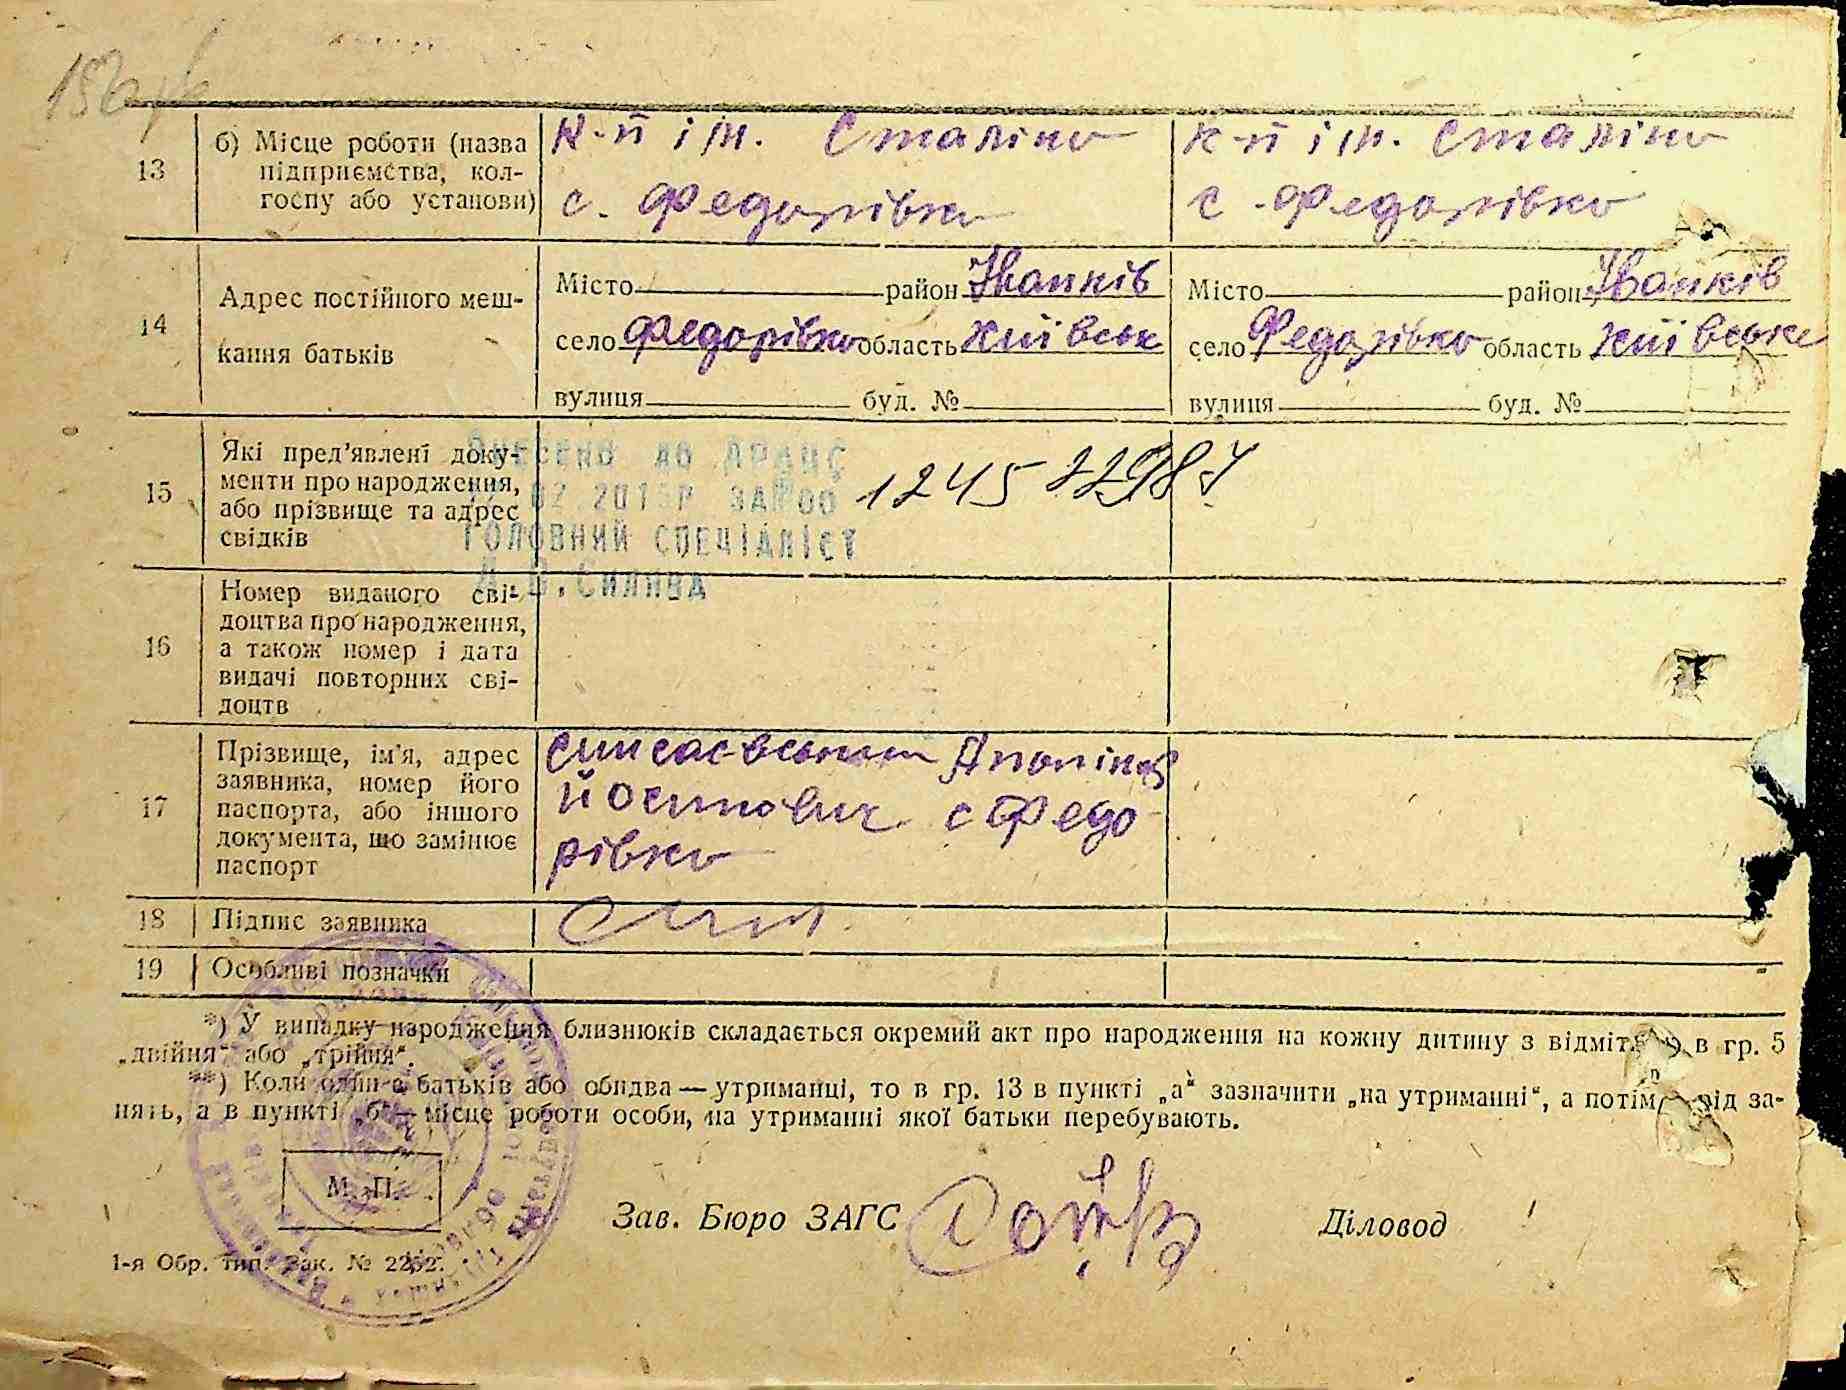 13
б) Місце роботи (назва
підприємства, кол-
госпу або установи)
к-п ім. Сталіна
с. Федорівка
к-п ім. Сталіна
с. Федорівка
14
Адрес постійного меш-
кання батьків
Місто район Іванків
село Федорівка область Київськ
вулиця буд. №
Місто район Іванків
село Федорівка область Київська
вулиця буд. №
15
Які пред'явлені доку-
менти про народження,
або прізвище та адрес
свідків
ВНЕСЕНО ДО ДРАЦС
02.201 Р ЗА № 00
ГОЛОВНИЙ СПЕЦІАЛІСТ
124572987
16
Номер виданого сві-
доцтва про народження,
а також номер і дата
видачі повторних сві-
доцтв
17
Прізвище, ім'я, адрес
заявника, номер його
паспорта, або іншого
документа, що замінює
паспорт
с Федо
рівка
18
Підпис заявника
19
Особливі позначки
*) У випадку народження близнюків складається окремий акт про народження на кожну дитину з відміткою в гр. 5
„двійня" або „трійня".
**) Коли один з батьків або обидва — утриманці, то в гр. 13 в пункті „а" зазначити „на утриманні", а потім рід за-
нять, а в пункті „б" — місце роботи особи, на утриманні якої батьки перебувають.
М. П.
Зав. Бюро ЗАГС
Діловод
1-я Обр. тип. Зак. № 2252.